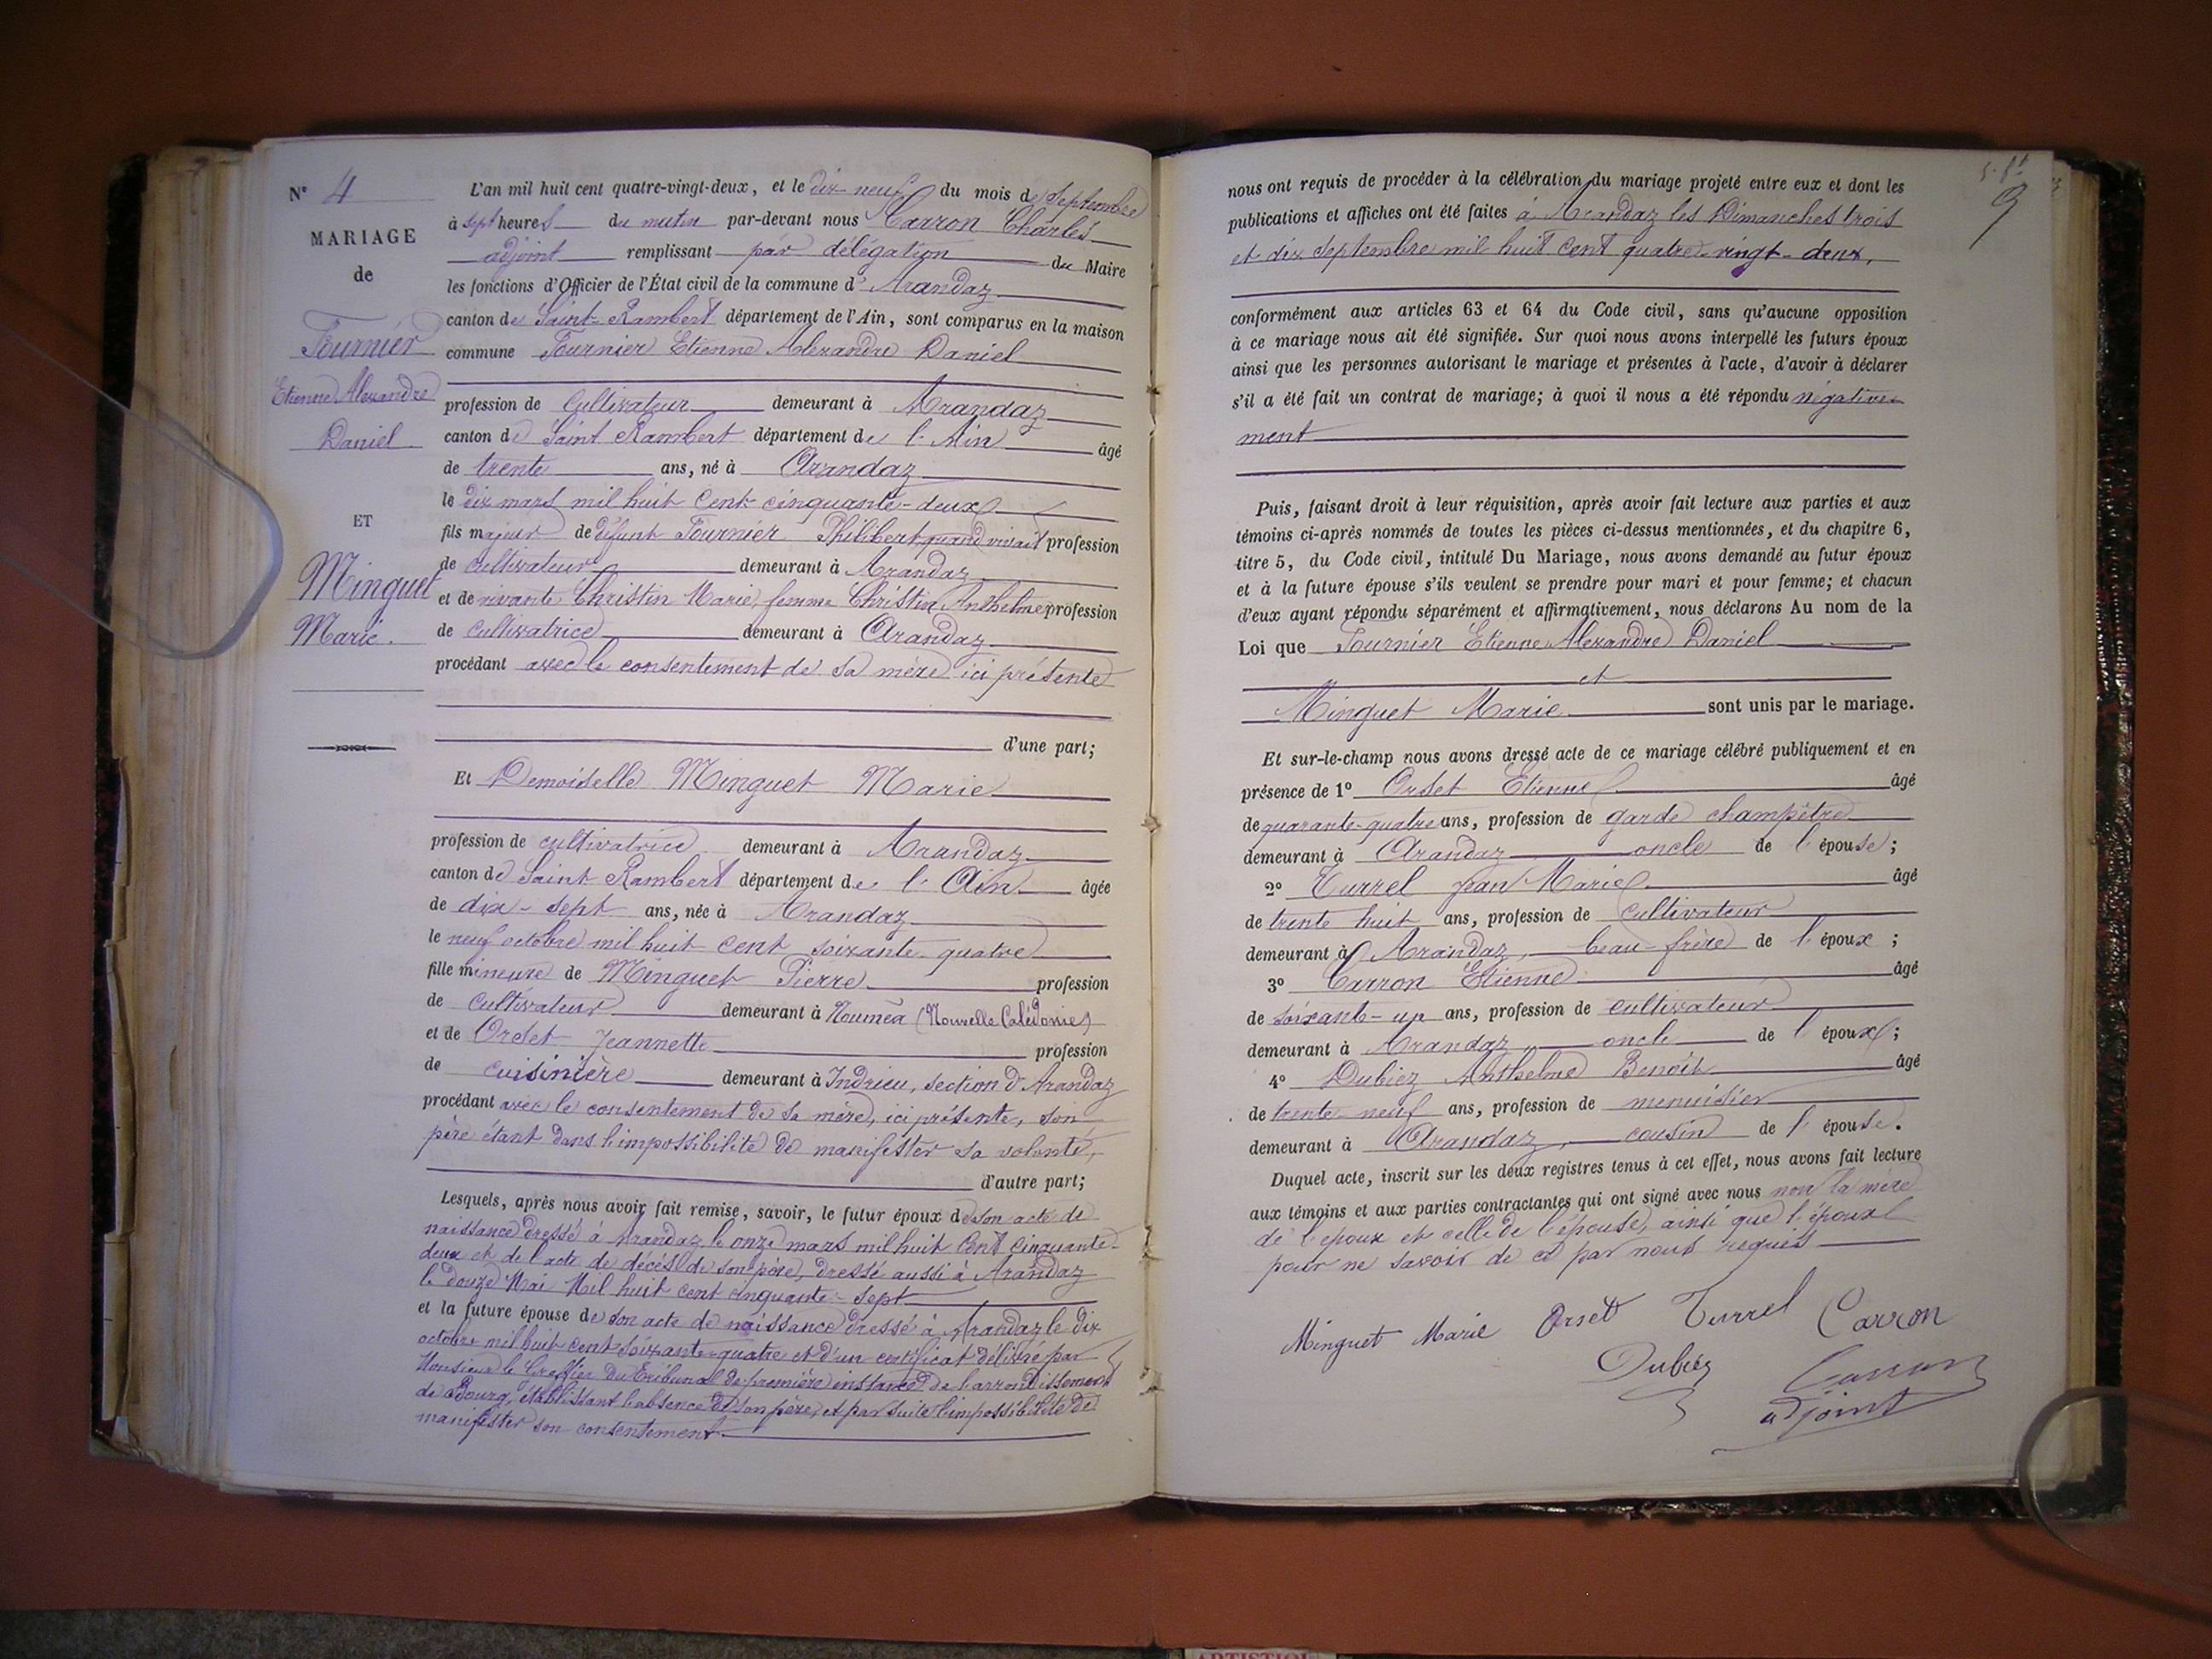 N° 4
MARIAGE
de
Fournier
Etienne Alexandre
Daniel
ET
Minguet
Marie.
L'an mil huit cent quatre-vingt-deux, et le dix-neuf du mois de Septembre
à sept heures du matin par-devant nous Carron Charles
adjoint remplissant par délégation du Maire
les fonctions d'Officier de l'État civil de la commune d' Arandaz
canton de Saint-Rambert département de l'Ain, sont comparus en la maison
commune Fournier Etienne Alexandre Daniel
profession de Cultivateur demeurant à Arandaz
canton de Saint Rambert département de l'Ain âgé
de trente ans, né à Arandaz
le dix mars mil huit cent cinquante-deux
fils majeur de défunt Fournier Philibert quand vivait profession
de cultivateur demeurant à Arandaz
et de vivante Christin Marie, femme Christin Anthelme profession
de cultivatrice demeurant à Arandaz
procédant avec le consentement de sa mère ici présente
d'une part;
Et Demoiselle Minguet Marie
profession de cultivatrice demeurant à Arandaz
canton de Saint Rambert département de l'Ain âgée
de dix-sept ans, née à Arandaz
le neuf octobre mil huit cent soixante-quatre
fille mineure de Minguet Pierre profession
de cultivateur demeurant à Nouméa (Nouvelle Calédonie)
et de Orset Jeannette profession
de cuisinière demeurant à Indrieu, section d'Arandaz
procédant avec le consentement de sa mère, ici présente, son
père étant dans l'impossibilité de manifester sa volonté,
d'autre part;
Lesquels, après nous avoir fait remise, savoir, le futur époux de son acte de
naissance dressé à Arandaz le onze mars mil huit cent cinquante-
deux et de l'acte de décès de son père, dressé aussi à Arandaz
le douze Mai Mil huit cent cinquante-sept
et la future épouse de son acte de naissance dressé à Arandaz le dix
octobre mil huit cent soixante-quatre et d'un certificat délivré par
Monsieur le Greffier du Tribunal de première instance de l'arrondissement
de Bourg, établissant l'absence de son père, et par suite l'impossibilité de
manifester son consentement
9
nous ont requis de procéder à la célébration du mariage projeté entre eux et dont les
publications et affiches ont été faites à Arandaz les Dimanches trois
et dix septembre mil huit cent quatre-vingt-deux,
conformément aux articles 63 et 64 du Code civil, sans qu'aucune opposition
à ce mariage nous ait été signifiée. Sur quoi nous avons interpellé les futurs époux
ainsi que les personnes autorisant le mariage et présentes à l'acte, d'avoir à déclarer
s'il a été fait un contrat de mariage; à quoi il nous a été répondu négative-
ment
Puis, faisant droit à leur réquisition, après avoir fait lecture aux parties et aux
témoins ci-après nommés de toutes les pièces ci-dessus mentionnées, et du chapitre 6,
titre 5, du Code civil, intitulé Du Mariage, nous avons demandé au futur époux
et à la future épouse s'ils veulent se prendre pour mari et pour femme; et chacun
d'eux ayant répondu séparément et affirmativement, nous déclarons Au nom de la
Loi que Fournier Etienne Alexandre Daniel
et
Minguet Marie sont unis par le mariage.
Et sur-le-champ nous avons dressé acte de ce mariage célébré publiquement et en
présence de 1° Orset Etienne âgé
de quarante-quatre ans, profession de garde champêtre
demeurant à Arandaz oncle de l'épouse;
2° Turrel Jean Marie âgé
de trente huit ans, profession de cultivateur
demeurant à Arandaz, beau-frère de l'époux;
3° Carron Etienne âgé
de soixante-un ans, profession de cultivateur
demeurant à Arandaz, oncle de l'époux;
4° Dubiez Anthelme Benoît âgé
de trente-neuf ans, profession de menuisier
demeurant à Arandaz, cousin de l'épouse.
Duquel acte, inscrit sur les deux registres tenus à cet effet, nous avons fait lecture
aux témoins et aux parties contractantes qui ont signé avec nous non la mère
de l'époux et celle de l'épouse, ainsi que l'époux
pour ne savoir de ce par nous requis
Minguet Marie Orset Turrel Carron
Dubiez Carron
adjoint